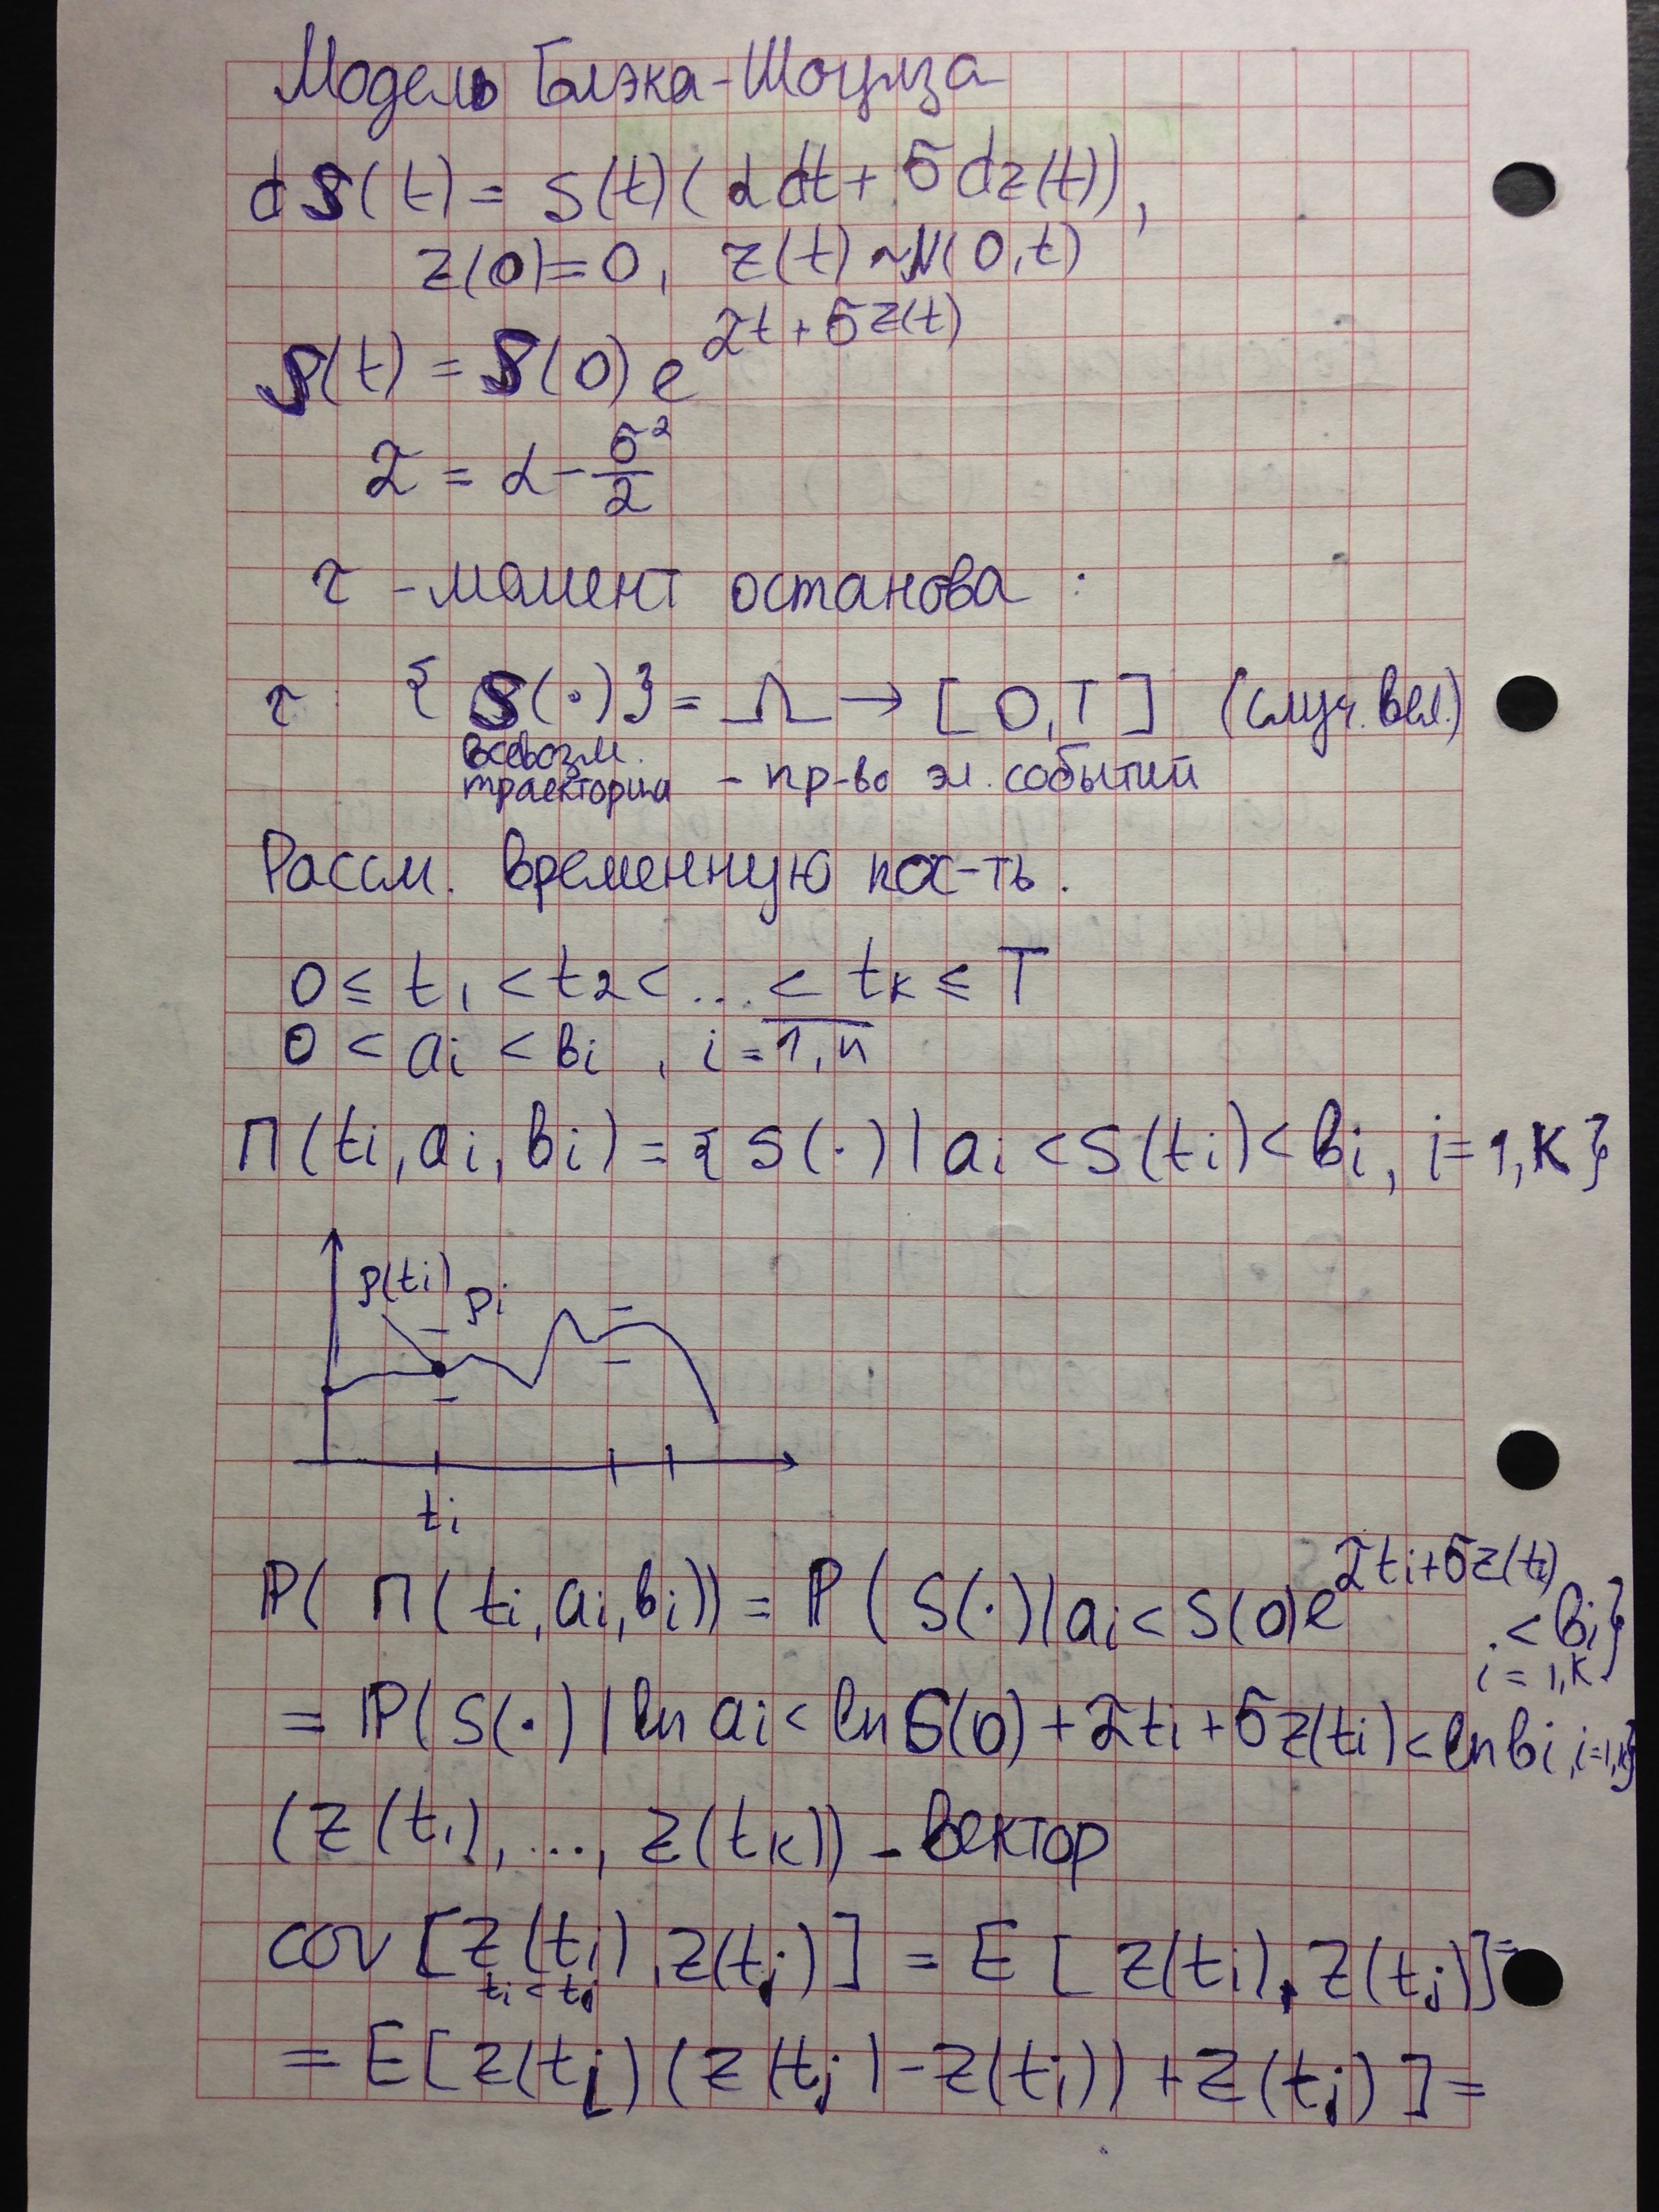 Модель Блэка-Шоулза
dS(t) = S(t)(αdt + σdz(t)),
z(0)=0, z(t) ~ N(0,t)
S(t) = S(0) e^{α̃t + σz(t)}
α̃ = α - σ²/2
τ - момент останова :
τ : { S(·) } = Ω → [0,T] (случ. вел.)
всевозм.
траектории - пр-во эл. событий
Рассм. временную пос-ть.
0 ≤ t₁ < t₂ < ... < tк ≤ T
0 < ai < bi , i = 1,n
П(ti, ai, bi) = { S(·) | ai < S(ti) < bi, i=1,K }
S(ti) Si
ti
P( П(ti, ai, bi)) = P( S(·) | ai < S(0)e^{α̃ti+σz(ti)} < bi}
i = 1,K
= P( S(·) | ln ai < ln S(0) + α̃ti + σz(ti) < ln bi, i=1,K}
(z(t₁), ..., z(tк)) - вектор
cov [z(ti), z(tj)] = E [ z(ti), z(tj)] =
ti < tj
= E[ z(ti) (z(tj) - z(ti)) + z(ti) ] =